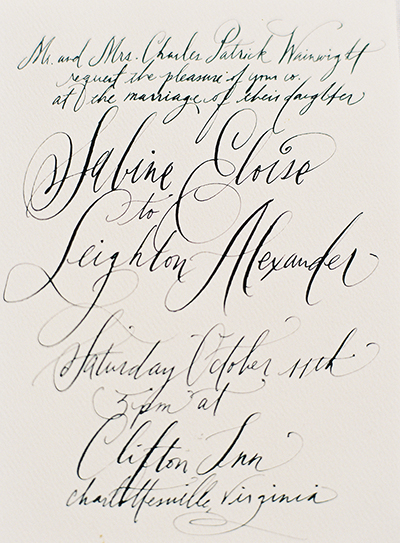 Mr. and Mrs. Charles Patrick Wainwright
request the pleasure of your co.
at the marriage of their daughter
Sabine Eloise
to
Leighton Alexander
Saturday October 11th
5pm at
Clifton Inn
Charlottesville, Virginia